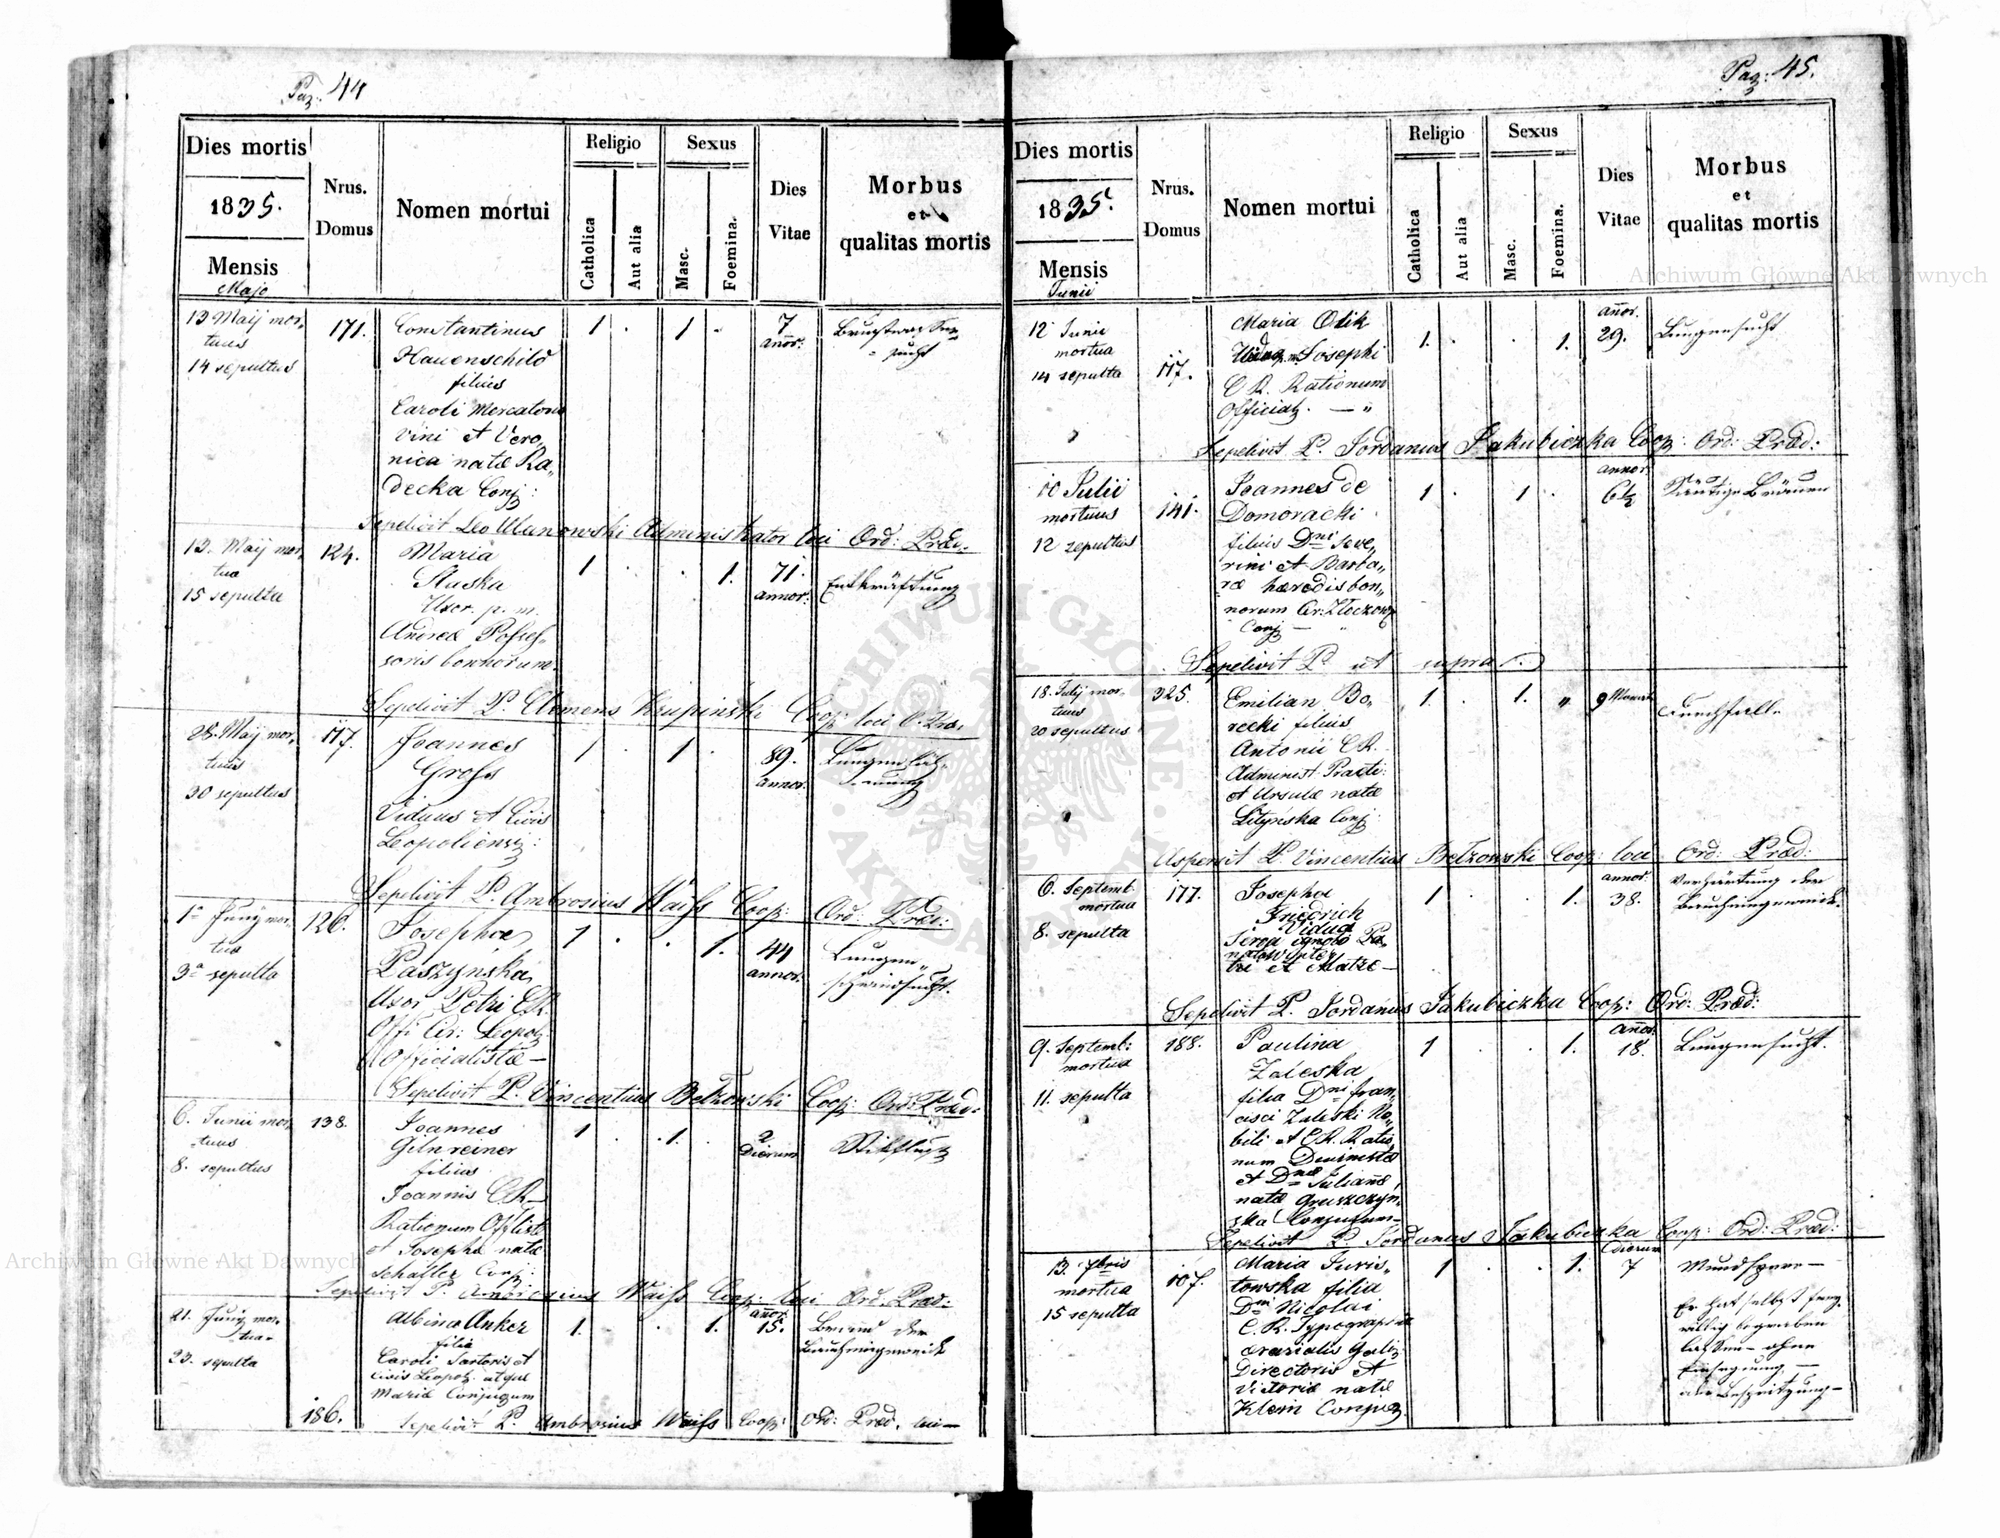 Pag: 44
Dies mortis
1835.
Mensis
Majo
Nrus.
Domus
Nomen mortui
Religio
Catholica
Aut alia
Sexus
Masc.
Foemina.
Dies
Vitae
Morbus
et
qualitas mortis
13 Maij mor,
tuus
14 sepultus
171.
Constantinus
Hauenschild
filius
Caroli Mercatoris
vini et Vero,
nica natæ Ra,
decka Conj:
1 . 1 .
7
añor:
Sepelivit Leo Ulanowski Administrator loci Ord: Præd.
13. Maij mor,
tua
15 sepulta
124.
Maria
Sluska
Uxor. p. m.
Andreæ Posses,
soris bonnorum
1 . . 1.
71.
annor.
Entkräftung
Sepelivit P. Clemens Krupiński Coop: loci O. Præ.
28. Maij mor,
tuus
30 sepultus
117.
Joannes
Gross
Viduus et Civis
Leopoliensis:
1 . 1 .
89.
annor.
Lungenläh,
mung
Sepelivit P. Ambrosius Waiss Coop: Ord: Præd:
1a Junÿ mor,
tua
3a sepulta
126.
Josepha
Paszyńska
Uxor Petri C.R.
Offi Cir: Leopol:
Officialistæ —
1 . . 1.
44
annor.
Lungen,,
schwindsucht.
Sepelivit P. Vincentius Betzowski Coop: Ord: Præd:
6. Junii mor,
tuus
8. sepultus
138.
Joannes
Gilnreiner
filius
Joannis C.R.
Rationum Offlistæ
et Josepha natæ
Schäffer Conj:
1 . 1. .
2
Dierum
Stikfluß
Sepelivit P. Ambrosius Waiss Coop: loci Ord. Præd:
21. Junÿ mor,
tua.
23. sepulta
186.
Albina Anker
filia
Caroli Sartoris et
Civis Leopol. atque
Mariæ Conjugum
1. . . 1.
añor.
15.
Brand der
Sepelivit P. Ambrosius Waiss Coop: Ord: Præd. loci —
Pag: 45.
Dies mortis
1835.
Mensis
Junii
Nrus.
Domus
Nomen mortui
Religio
Catholica
Aut alia
Sexus
Masc.
Foemina.
Dies
Vitae
Morbus
et
qualitas mortis
12 Junii
mortua
14 sepulta
117.
Maria Olik
Josephi
C.R. Rationum
Official. — "
1. . . 1.
añor.
29.
Lungensucht
Sepelivit P. Jordanus Jakubiczka Coop: Ord: Præd:
10 Julii
mortuus
12 sepultus
141.
Joannes de
Domoracki
filius Dni Seve,
rini et Barba,
ræ hæredis bon,
norum Cir: Złoczow
Conj —
1 . 1 .
annor.
Häutige Bräune
Sepelivit P. ut supra.
18. Julij mor.
tuus
20 sepultus
325.
Emilian Bo,
recki filius
Antonii C.R.
Administ. Practi:
et Ursulæ natæ
Lityńska Conj:
1. . 1. "
9 Monat
Durchfall.
Aspersit P. Vincentius Betzowski Coop: loci Ord: Præd:
6. Septemb.
mortua
8. sepulta
177.
Josepha
Friedrich
Vidua
1 . . 1.
annor.
38.
Verhärtung der
Sepelivit P. Jordanus Jakubiczka Coop: Ord: Præd:
9. Septemb:
mortua
11. sepulta
188.
Paulina
Zaleska
filia Dni Fran,
cisci Zaleski No,
bili et C.R. Ratio,
num
et Dnæ Julianæ
natæ Gruszczyn,
ska Conjugum —
1 . . 1.
añor.
18.
Lungensucht.
Sepelivit P. Jordanus Jakubiczka Coop: Ord: Præd:
13. 7bris
mortua
15 sepulta
107.
Maria Juris,
towska filia
Dni Nicolai
C.R. Typographiæ
ærarialis Galiz:
Directoris et
Victoriæ natæ
Klein Conjug.
1 . . 1.
dierum
7
Mundsperre —
Er hat selbst frey,
willig begraben
lassen — ohne
Einsegnung —
oder Bespritzung —
Archiwum Główne Akt Dawnych
Archiwum Główne Akt Dawnych
ARCHIWUM GŁÓWNE AKT DAWNYCH